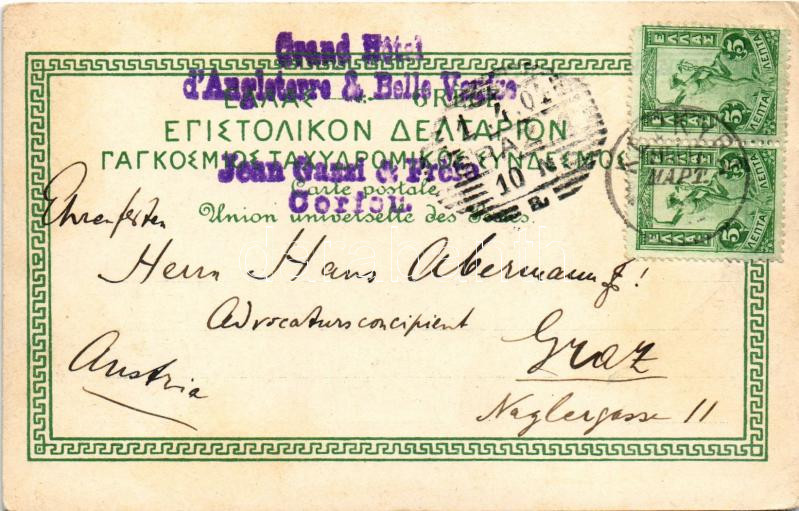 Grand Hôtel
d'Angleterre & Belle Venise
ΕΛΛΑΣ — GRÈCE
ΕΠΙΣΤΟΛΙΚΟΝ ΔΕΛΤΑΡΙΟΝ
ΠΑΓΚΟΣΜΙΟΣ ΤΑΧΥΔΡΟΜΙΚΟΣ ΣΥΝΔΕΣΜΟΣ
Jean Gazzi & Frère
Carte postale
Corfou
Union universelle des Postes
Herrn Hans Abermann
Advocaturs concipient
Graz
Austria
Naglergasse 11
ΕΛΛΑΣ
5 ΛΕΠΤΑ 5
ΛΕΠΤΑ
ΕΛΛΑΣ
5 ΛΕΠΤΑ 5
ΛΕΠΤΑ
GRAZ
ΜΑΡΤ.